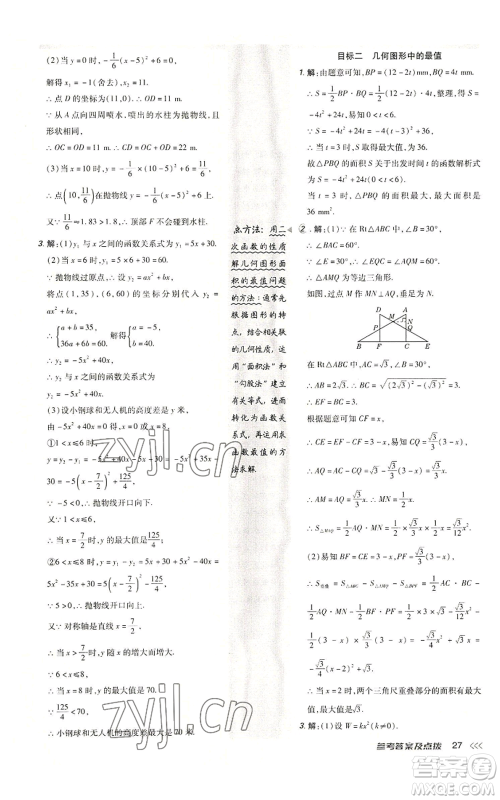 (2)当 y=0 时, -1/6(x-5)²+6=0,
解得 x₁=-1(舍去), x₂=11.
∴点 D 的坐标为(11,0). ∴OD=11 m.
∵从 A 点向四周喷水,喷出的水柱为抛物线,且
形状相同,
∴OC=OD=11 m. ∴CD=OC+OD=22 m.
(3)当 x=10 时, -1/6(x-5)²+6=-1/6×(10-5)²+6=11/6,
∴点(10,11/6)在抛物线 y=-1/6(x-5)²+6 上.
又∵11/6≈1.83>1.8, ∴顶部 F 不会碰到水柱.
3.解:(1)y₁ 与 x 之间的函数关系式为 y₁=5x+30.
(2)当 x=6 时,y₁=5×6+30=60.
∵抛物线过原点,∴设 y₂=ax²+bx,
将点(1,35),(6,60)的坐标分别代入 y₂=
ax²+bx,
得 {a+b=35, 36a+6b=60. 解得 {a=-5, b=40.
∴y₂ 与 x 之间的函数关系式为
y₂=-5x²+40x.
(3)设小钢球和无人机的高度差为 y 米,
由 -5x²+40x=0,得 x=0 或 x=8.
①1<x≤6 时,y=y₂-y₁=-5x²+40x-5x-
30=-5x²+35x-30=-5(x-7/2)²+125/4.
∵-5<0,∴抛物线开口向下.
又∵1<x≤6,
∴当 x=7/2 时,y 的最大值是125/4;
②6<x≤8 时,y=y₁-y₂=5x+30+5x²-40x=
5x²-35x+30=5(x-7/2)²-125/4.
∵5>0,∴抛物线开口向上.
又∵对称轴为直线 x=7/2,
∴当 x>7/2 时,y 随 x 的增大而增大.
∵6<x≤8,
∴当 x=8 时,y 的最大值为 70.
∵125/4<70,
∴小钢球和无人机的高度差的最大值是 70 米.
点方法:用二
次函数的性质
解几何图形面
积的最值问题
的方法:通常先
根据图形的特
点,结合相关
的几何性质,运
用“面积法”和
“勾股法”建立
有关等式,进而
转化为函数关
系式,再运用求
函数最值的方
法求解.
目标二 几何图形中的最值
1.解:由题意可知,BP=(12-2t)mm,BQ=4t mm,
∴S=1/2BP·BQ=1/2(12-2t)·4t,整理,得 S
=-4t²+24t=-4(t-3)²+36,
∴当 t=3 时,S 取得最大值,最大值为 36.
故△PBQ 的面积 S 关于出发时间 t 的函数解析式
为 S=-4t²+24t,当 t=3 时,△PBQ 的面积最大,
36 mm².
2.解:(1)∵在 Rt△ABC 中,∠B=30°,
∴∠BAC=60°.
∵∠E=30°,∴∠EAC=∠AMQ=60°.
∴△AMQ 为等边三角形.
如图,过点 M 作 MN⊥AQ,垂足为点 N.
E A
M Q
N
B F C
在 Rt△ABC 中,∠B=30°,AC=√3,
∴AB=2√3,∴BC=√((2√3)²-(√3)²)=3.
∴EF=BC=3.
根据题意可知 CF=x,
∴CE=EF-CF=3-x,∴CQ=√3/3(3-x).
∴AQ=AC-CQ=√3-√3/3(3-x)=√3/3x.
∴AM=AQ=√3/3x. ∴MN=1/2x.
∴S△MAQ=1/2AQ·MN=1/2×√3/3x×1/2x=√3/12x².
(2)易知 BF=CE=3-x,PF=√3/3(3-x).
∴S重叠=S△ABC-S△AMQ-S△BPF=1/2AC·BC-
1/2AQ·MN-1/2BF·PF=
∴当 x=2 时,两个三角尺重叠部分的面积最大,最
大值是√3.
3.解:(1)设 W=kx²(k≠0).
参考答案及点拨 27
zyjl.cn
zyjl.cn